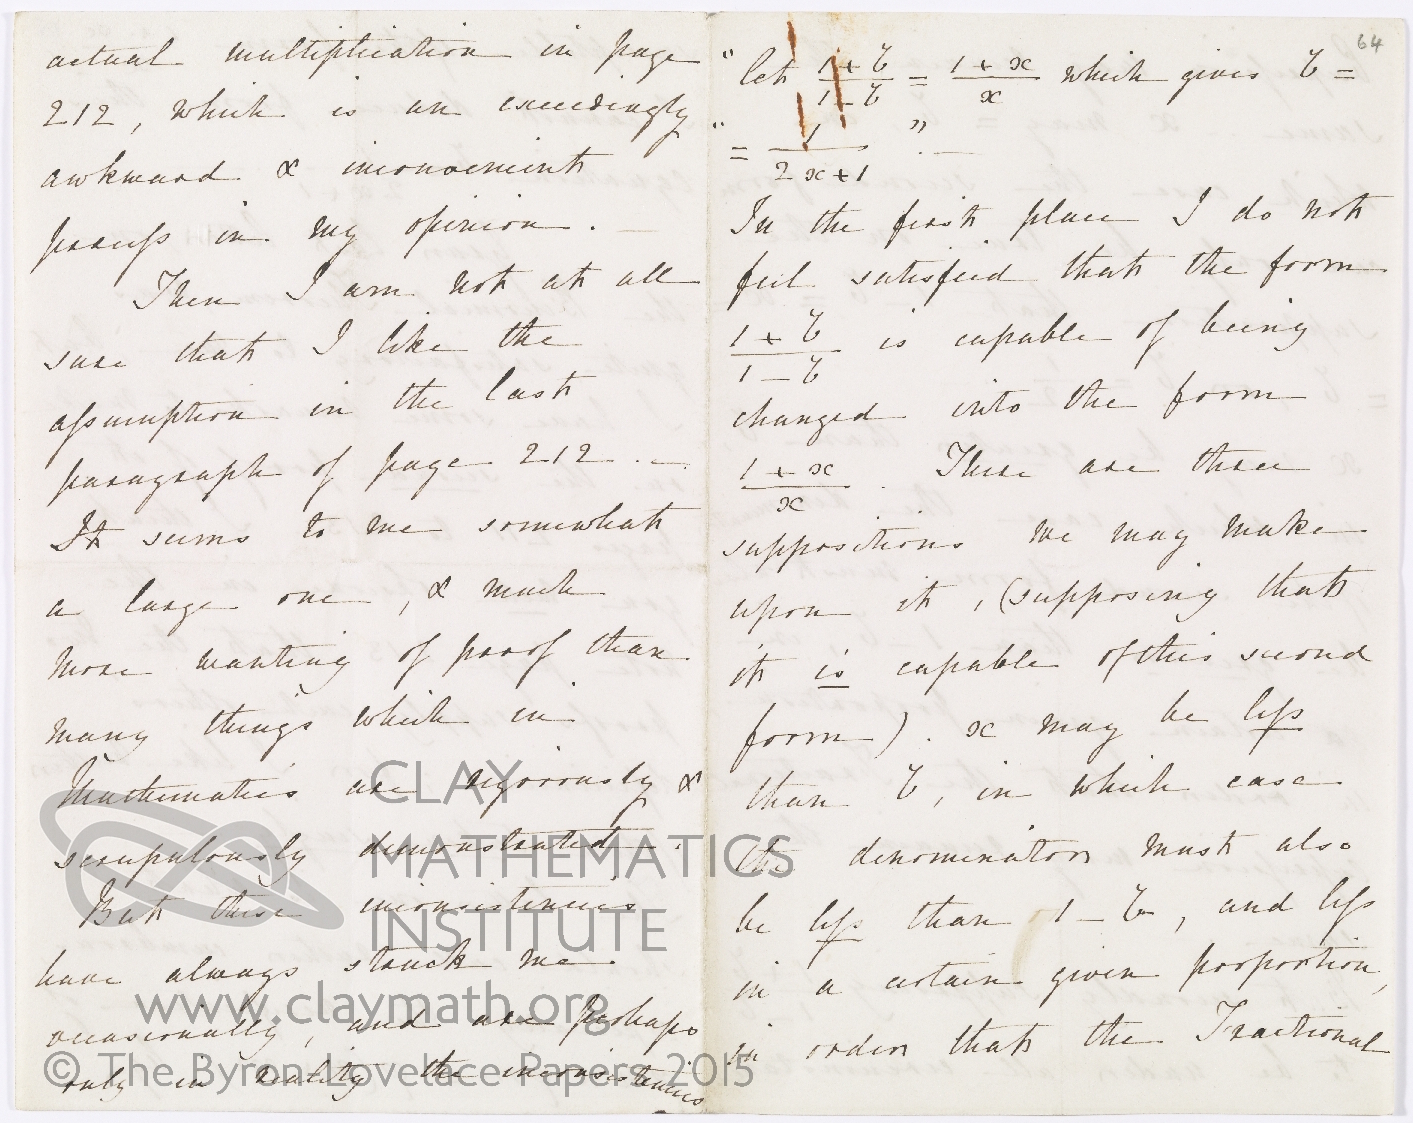 actual multiplication in page
212, which is an exceedingly
awkward & inconvenient
process in my opinion. —
Then I am not at all
sure that I like the
assumption in the last
paragraph of page 212. —
It seems to me somewhat
a large one, & much
more wanting of proof than
many things which in
Mathematics are rigorously &
scrupulously demonstrated.
But these inconsistencies
have always struck me
occasionally, and are perhaps
only in reality the inconsistencies
64
"let (1 + b)/(1 - b) = (1 + x)/x which gives b =
"= 1/(2x+1)" . —
In the first place I do not
feel satisfied that the form
(1 + b)/(1 - b) is capable of being
changed into the form
(1 + x)/x . There are three
suppositions we may make
upon it, (supposing that
it is capable of this second
form). x may be less
than b, in which case
the denominator must also
be less than 1 - b, and less
in a certain given proportion,
in order that the Fractional
CLAY
MATHEMATICS
INSTITUTE
www.claymath.org
© The Byron Lovelace Papers 2015